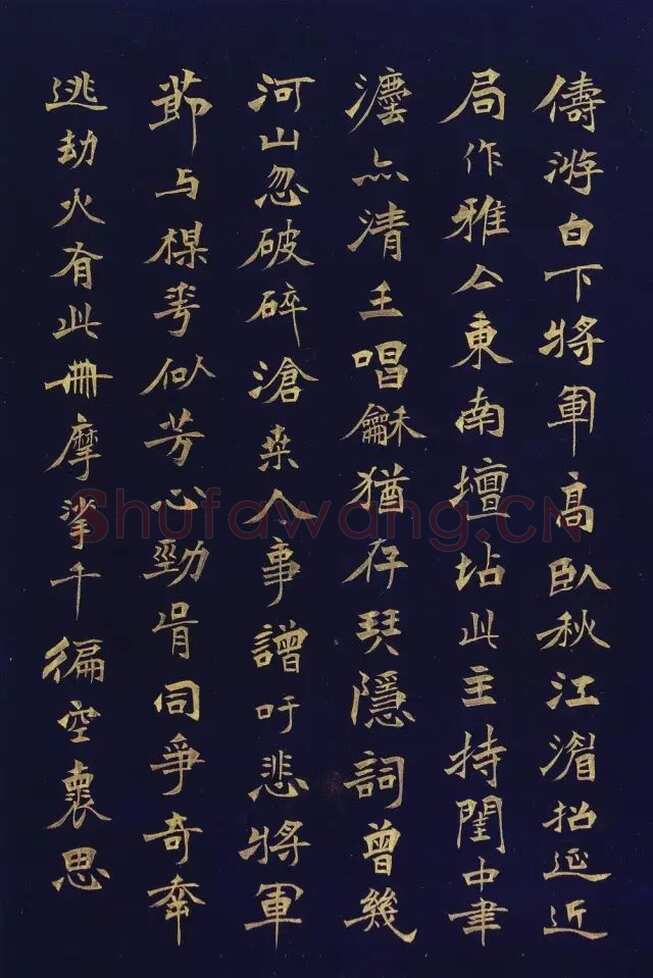 儔游白下將軍高臥秋江湄招延近
局作雅東南壇坫此主持閨中
灋亦清主唱龢猶存琴隱詞曾幾
河山忽破碎滄桒人事譄吁悲將軍
節与楳蕚似芳心勁肎同爭奇
逃劫火有此冊摩挲千徧空褱思
Shufawang.CN